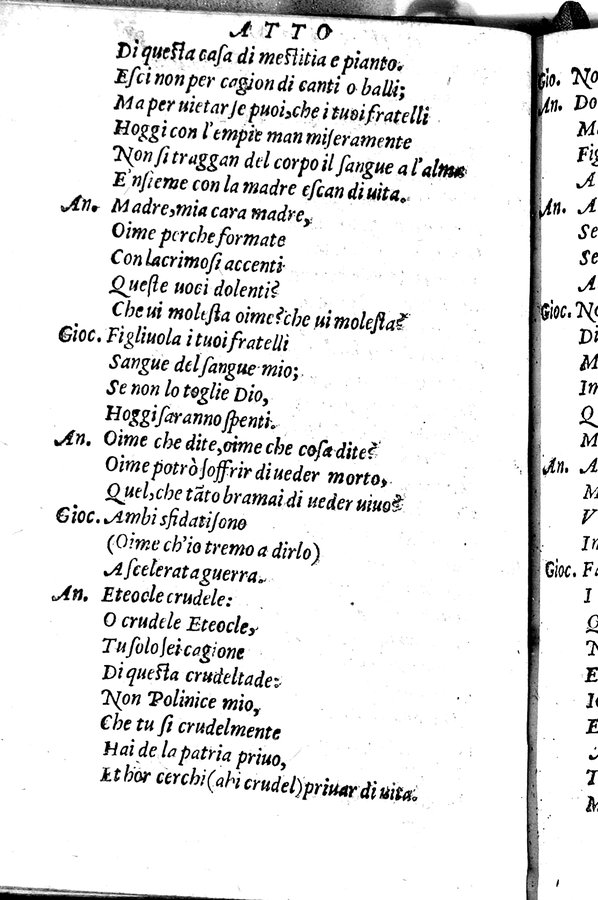 ATTO
Di queſta caſa di meſtitia e pianto.
Eſci non per cagion di canti o balli;
Ma per uietar ſe puoi, che i tuoi fratelli
Hoggi con l'empie man miſeramente
Non ſi traggan del corpo il ſangue a l'alma
E'nſieme con la madre eſcan di uita.
An. Madre, mia cara madre,
Oime perche formate
Con lacrimoſi accenti
Queſte uoci dolenti?
Che ui moleſta oime? che ui moleſta?
Gioc. Figliuola i tuoi fratelli
Sangue del ſangue mio;
Se non lo toglie Dio,
Hoggi ſaranno ſpenti.
An. Oime che dite, oime che coſa dite?
Oime potrò ſoffrir di ueder morto,
Quel, che tãto bramai di ueder uiuo?
Gioc. Ambi sfidati ſono
(Oime ch'io tremo a dirlo)
A ſcelerata guerra.
An. Eteocle crudele:
O crudele Eteocle,
Tu ſolo ſei cagione
Di queſta crudeltade:
Non Polinice mio,
Che tu ſi crudelmente
Hai de la patria priuo,
Et hor cerchi (ahi crudel) priuar di uita.
Gio. No
An. Do
M
Fig
A
An. A
Se
Se
A
Gioc. No
Di
M
In
Q
M
An. A
M
V
In
Gioc. Fa
I
Q
N
E
Io
E
T
M